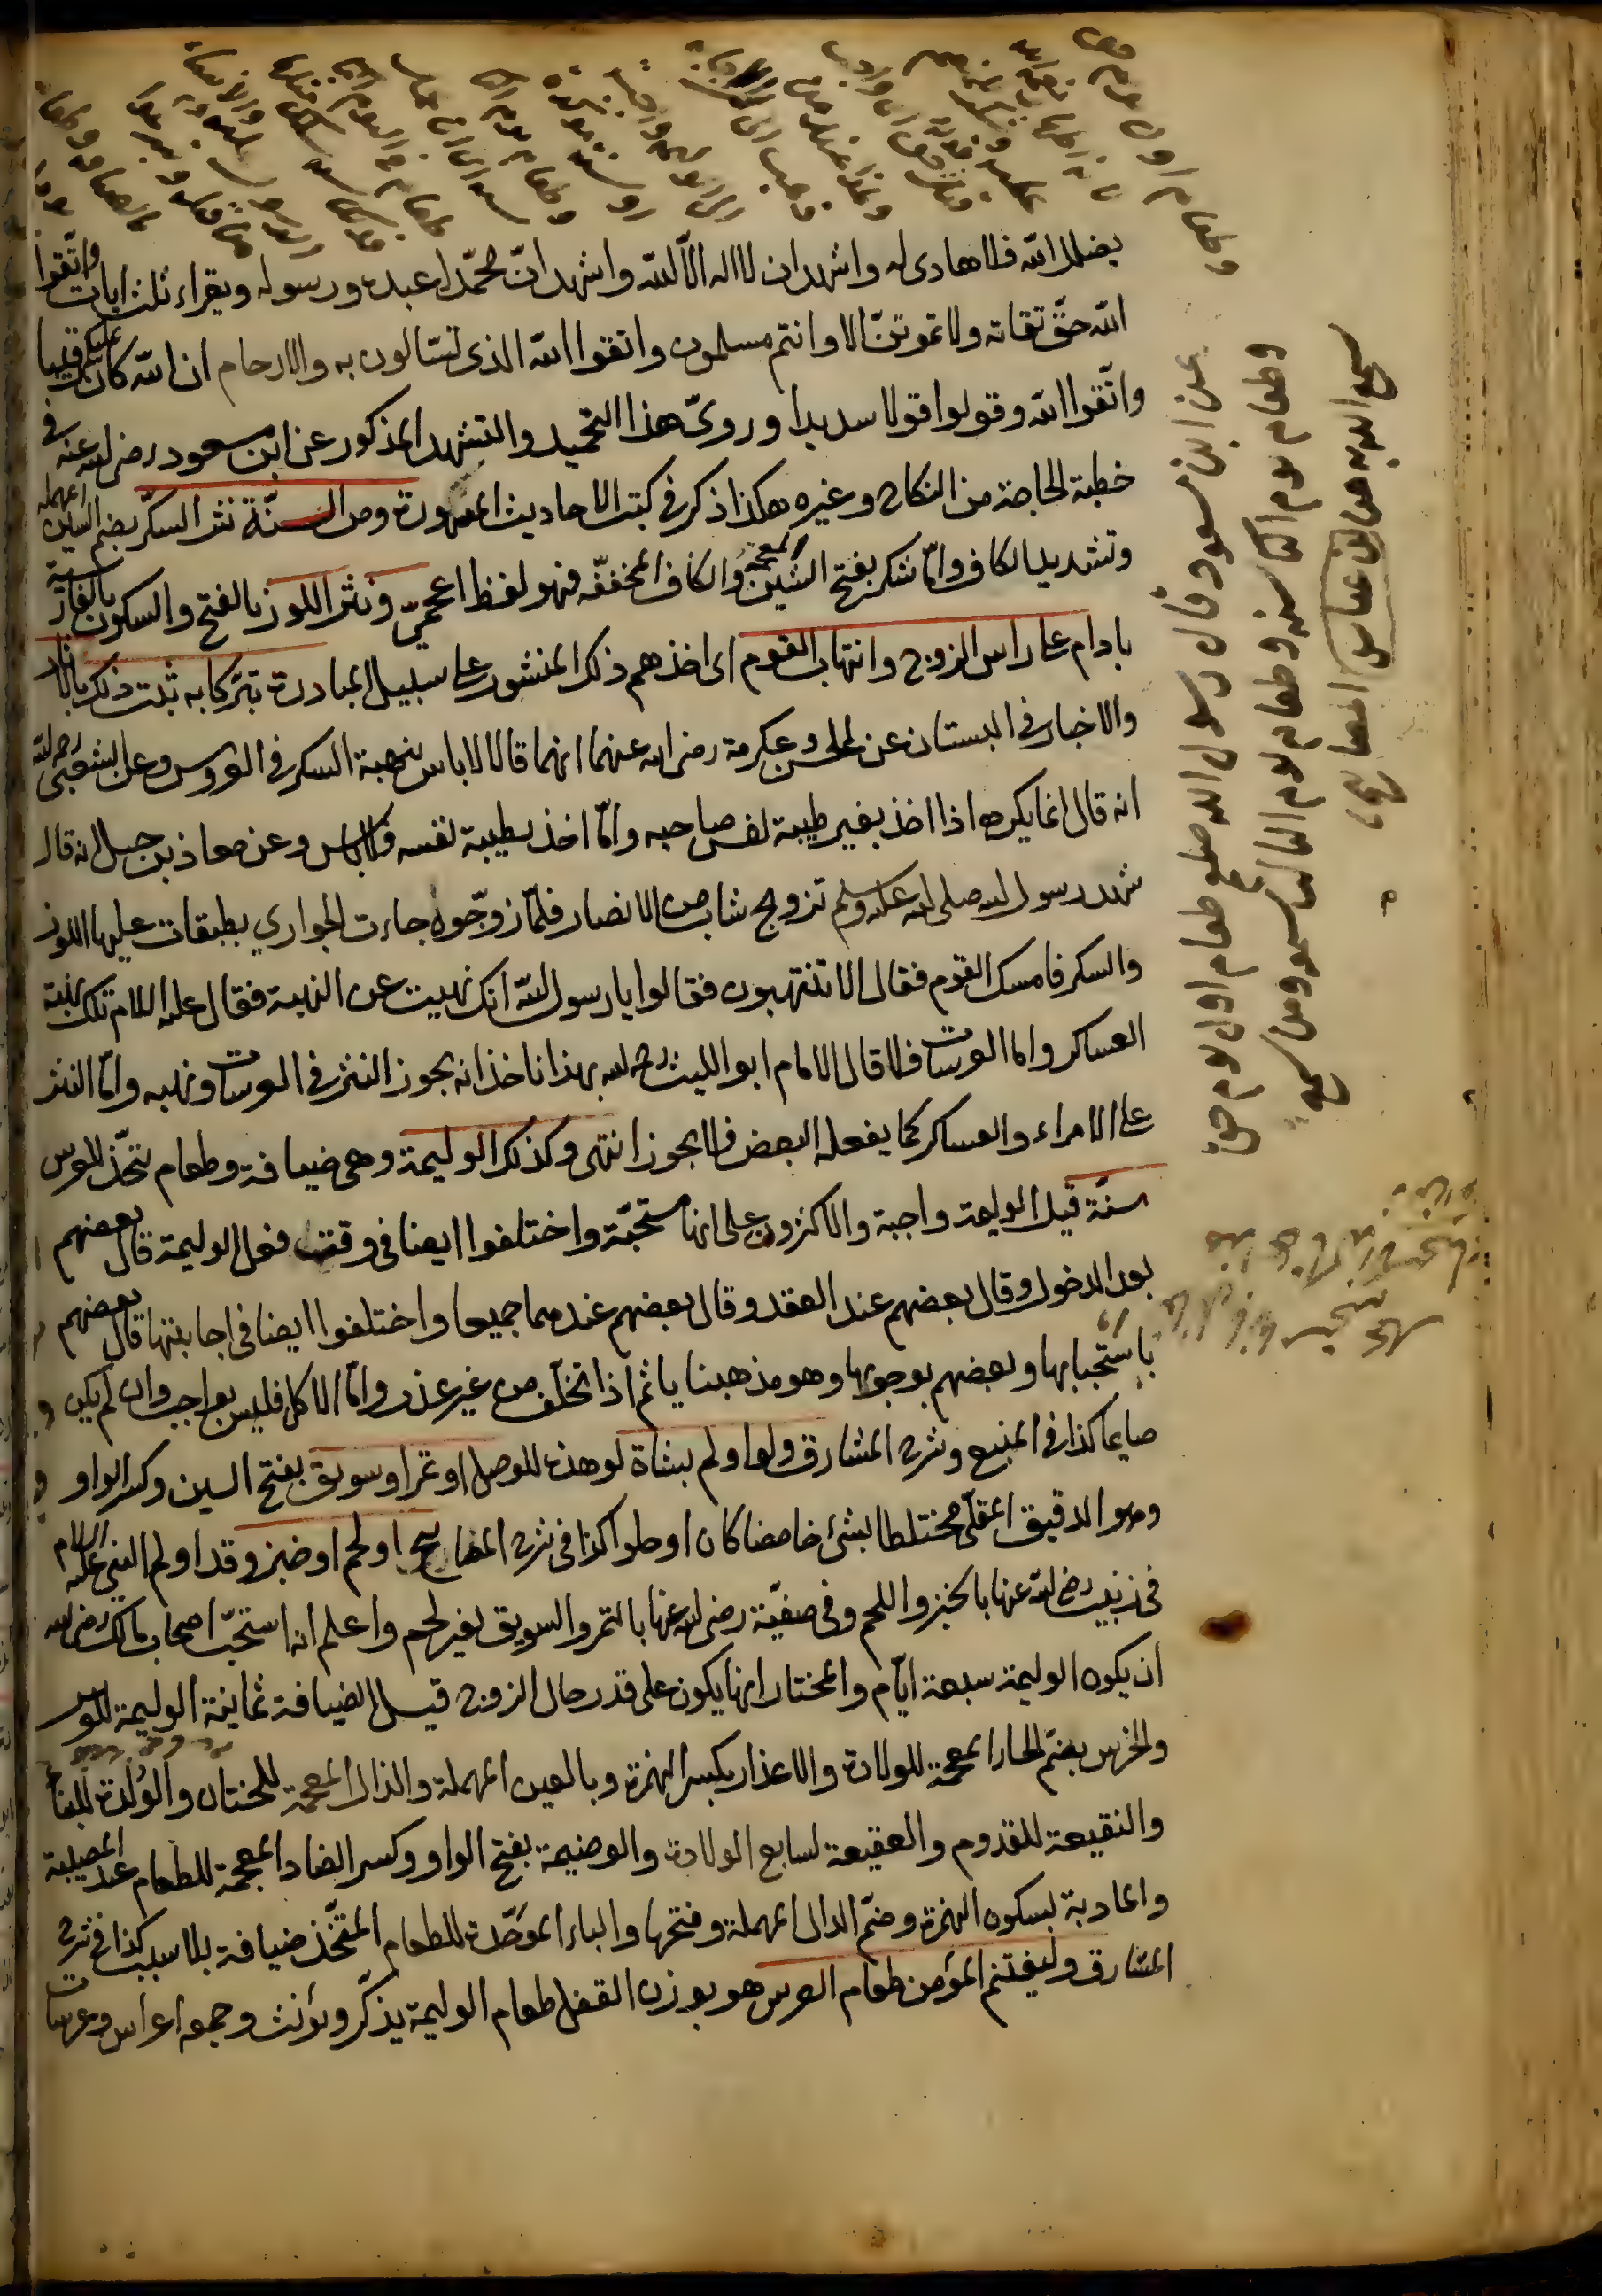 يضلل الله فلا هادى له واشهد ان لا اله الا الله واشهد ان محمّدا عبده ورسوله ويقراء ثلث ايات واتّقوا
الله حقّ تقاته ولا تموتنّ الا وانتم مسلمون واتقوا الله الذى تسّالون به والارحام ان الله كان عليكم رقيبا
واتّقوا الله وقولوا قولا سديدا وروىّ هذا التحميد والتشهد المذكور عن ابن مسعود رضى الله عنه فى
خطبة الحاجة من النكاح وغيره هكذا ذكر فى كتب الاحاديث المشهورة ومن السنّة نثر السكّر بضم السّين المهملة
وتشديد الكاف وامّا شكر بفتح الشّين المعجمة والكاف المخففّه فهو لفظ اعجمىّ ونثر اللوز بالفتح والسكون بالفارسية
بادام على راس الزوج وانتهاب القوم اى اخذهم ذلك المنثور على سبيل المبادرة تبرّكا به ثبت ذلك بالاثار
والاخبار فى البستان عن الحسن وعكرمة رضى الله عنهما انهما قالا لا باس بنهبة السكر فى العروس وعن الشعبى رحمه الله
انه قال انما يكره اذا اخذ بغير طيبة نفس صاحبه وامّا اخذ بطيبة نفسه فلا باس وعن معاذ بن جبل انه قال
شهد رسول الله صلى الله عليه وسلم تزويج شاب من الانصار فلمّا زوّجوه جاءت الجوارى بطبقات عليها اللوز
والسكر فامسك القوم فقال الا تنتهبون فقالوا يا رسول الله انك نهيت عن النهبة فقال عليه السلام تلك نهبة
العساكر واما العرسات فلا قال الامام ابو الليث رحمه الله بهذا ناخذ انه يجوز النثر فى العرسات ونهبه وامّا النثر
على الامراء والعساكر كما يفعله البعض فلا يجوز انتهى وكذلك الوليمة وهى ضيافة وطعام تتّخذ للعرس
سنّة قيل الوليمة واجبة والاكثرون على انها مستحبّة واختلفوا ايضا فى وقت فعل الوليمة قال بعضهم
بعد الدخول وقال بعضهم عند العقد وقال بعضهم عندهما جميعا واختلفوا ايضا فى اجابتها قال بعضهم
باستحبابها وبعضهم بوجوبها وهو مذهبنا ياثم اذا تخلّف من غير عذر وامّا الاكل فليس بواجب وان لم يكن
صايما كذا فى المنبع وشرح المشارق ولو اولم بشاة لوهذه للوصل او تمر او سويق بفتح السين وكسر الواو
وهو الدقيق المقلى مختلطا بشئ حامضا كان او حلوا كذا فى شرح المصابيح او لحم او خبز وقد اولم النبى عليه السلام
فى زينب رضى الله عنها بالخبز واللحم وفى صفيّة رضى الله عنها بالتمر والسويق بغير لحم واعلم انه استحبّ اصحاب مالك رضى الله
ان يكون الوليمة سبعة ايّام والمختار انها يكون على قدر حال الزوج قيل الضيافة ثمانية الوليمة للعرس
والخرس بضمّ الخاء المعجمة للولادة والاعذار بكسر الهمزة وبالعين المهملة والذال المعجمة للختان والوكيرة للبناء
والنقيعة للقدوم والعقيقة لسابع الولادة والوضيمة بفتح الواو وكسر الضاد المعجمة للطعام عند المصيبة
والمادبة بسكون الهمزة وضمّ الدال المهملة وفتحها والباء الموحّدة للطعام المتّخذ ضيافة بلا سبب كذا فى شرح
المشارق وليغتنم المؤمن طعام العرس هو بوزن القفل طعام الوليمة يذكّر ويؤنث وجمعه اعراس وعرسات
عن ابن مسعود قال رسول الله صلعم طعام اول يوم حق
وطعام يوم الثانى سنة وطعام يوم الثالث سمعة ومن سمع
سمع الله به